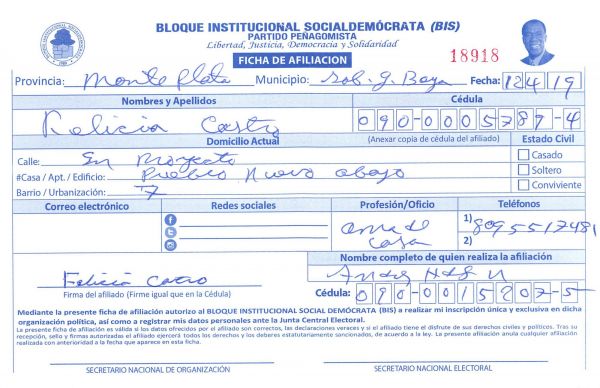 BLOQUE INSTITUCIONAL SOCIALDEMÓCRATA (BIS)
PARTIDO PEÑAGOMISTA
Libertad, Justicia, Democracia y Solidaridad
FICHA DE AFILIACION
18918
Provincia: Monte Plata Municipio: Sab. G. Boya Fecha: 12 4 19
Nombres y Apellidos Cédula
Felicia Castro 090-0005787-4
Domicilio Actual (Anexar copia de cédula del afiliado) Estado Civil
Calle: En Proyecto
#Casa / Apt. / Edificio: Pueblo Nuevo abajo
Barrio / Urbanización: 7
Casado
Soltero
Conviviente
Correo electrónico Redes sociales Profesión/Oficio Teléfonos
ama de casa
1) 8095517481
2)
Nombre completo de quien realiza la afiliación
Felicia Castro
Firma del afiliado (Firme igual que en la Cédula)
Cédula: 090-0015207-5
Mediante la presente ficha de afiliación autorizo al BLOQUE INSTITUCIONAL SOCIAL DEMÓCRATA (BIS) a realizar mi inscripción única y exclusiva en dicha
organización política, así como a registrar mis datos personales ante la Junta Central Electoral.
La presente ficha de afiliación es válida si los datos ofrecidos por el afiliado son correctos, las declaraciones veraces y si el afiliado tiene el disfrute de sus derechos civiles y políticos. Tras su
recepción, sello y firmas autorizadas el afiliado ejercerá todos los derechos y los deberes estatutariamente sancionados, de acuerdo a la ley. La presente afiliación anula cualquier afiliación
realizada con anterioridad a la fecha que aparece en esta ficha.
SECRETARIO NACIONAL DE ORGANIZACIÓN SECRETARIO NACIONAL ELECTORAL